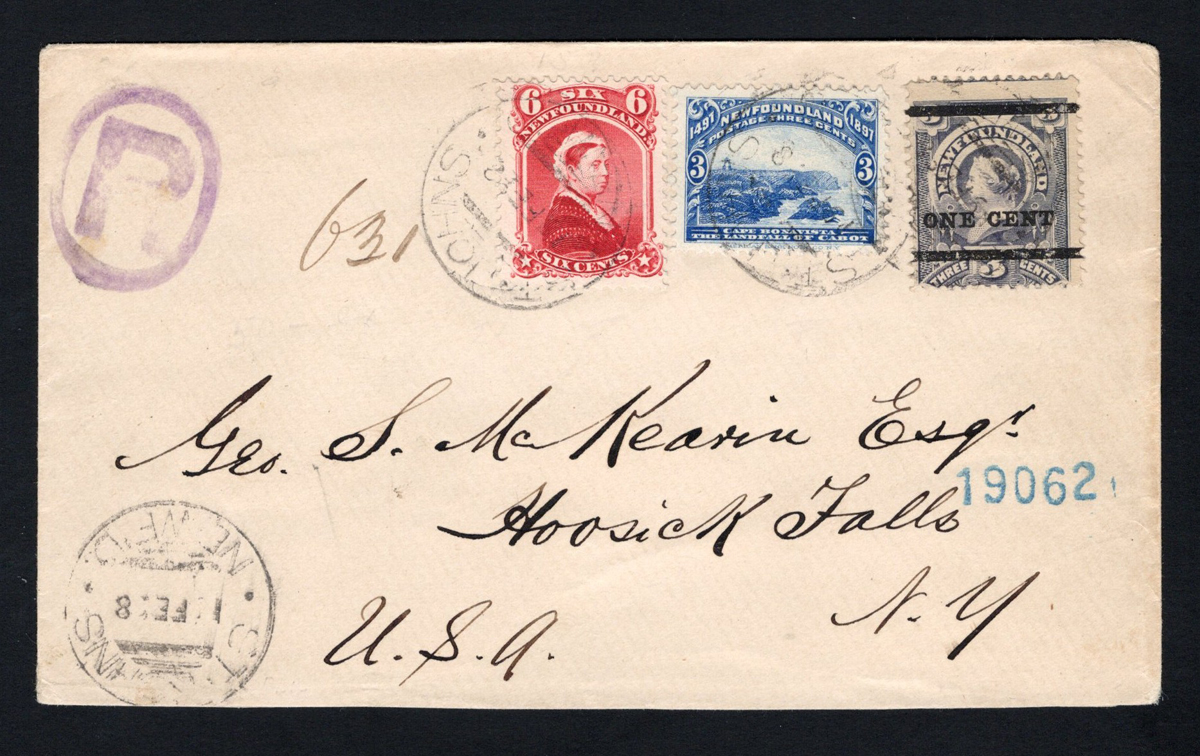 R
631
ST. JOHNS
6 SIX 6
NEWFOUNDLAND
SIX CENTS
1497 NEWFOUNDLAND 1897
POSTAGE THREE CENTS
3 3
CAPE BONAVISTA
THE LANDFALL OF CABOT
ST
3 3
NEWFOUNDLAND
ONE CENT
THREE 3 CENTS
Geo. S. McKearin Esqr
19062
Hoosick Falls
N. Y
U. S. A.
ST. JOHNS
NEWF'D.
FE 8